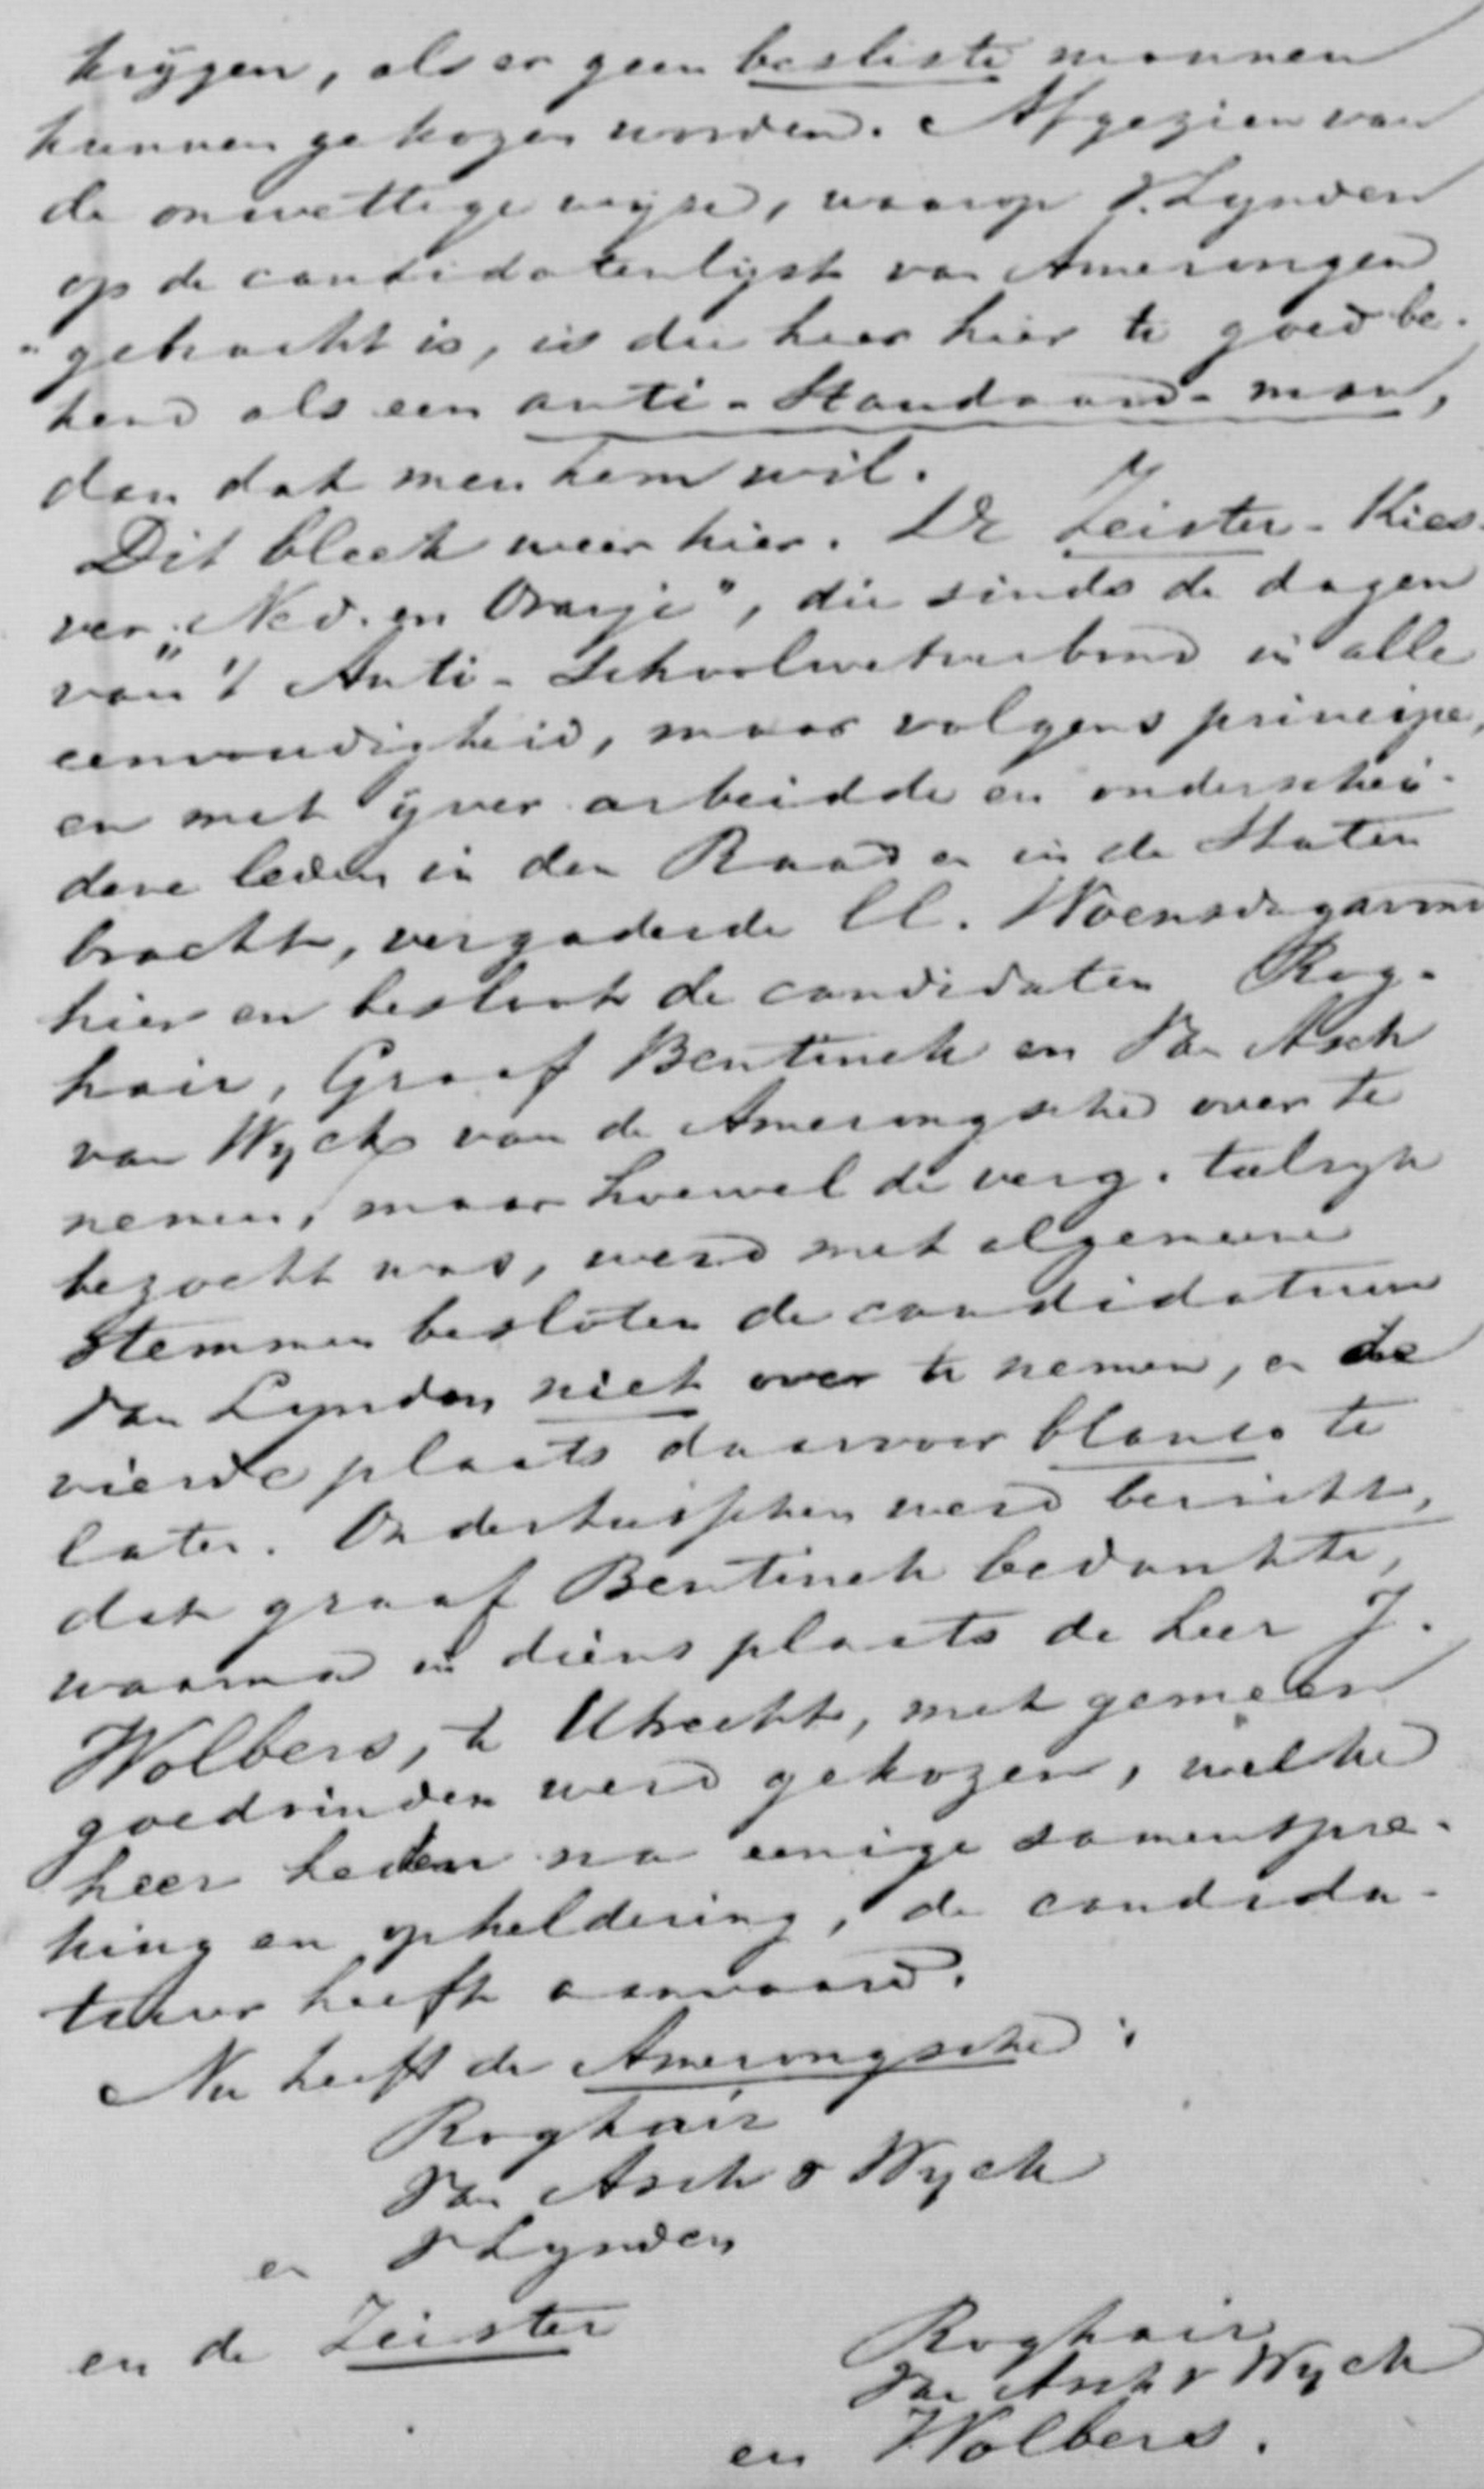 krijgen, als er geen besliste mannen
kunnen gekozen worden. Afgezien van
de onwettige wijze, waarop v. Lynden
op de candidatenlijst van Amerongen
gebracht is, is die heer hier te goed be-
kend als een anti-Standaard-man,
dan dat men hem wil.
Dit bleek weer hier. De Zeister-Kies
ver. „Ned. en Oranje", die sinds de dagen
van 't Anti-Schoolwetverbond in alle
eenvoudigheid, maar volgens principe,
en met ijver arbeidde en onderschei-
dene leden in den Raad en in de Staten
bracht, vergaderde ll. Woensdagavond
hier en besloot de candidaten Rog-
hair, Graaf Bentinck en Van Asch
van Wyck van de Amerongsche over te
nemen, maar hoewel de verg. talrijk
bezocht was, werd met algemeene
stemmen besloten de candidatuur
Van Lynden niet over te nemen, en de
vierde plaats daarvoor blanco te
laten. Ondertusschen werd bericht,
dat graaf Bentinck bedankte,
waarna in diens plaats de heer J.
Wolbers, te Utrecht, met gemeen
goedvinden werd gekozen, welke
heer heden na eenige samenspre-
king en opheldering, de candida-
tuur heeft aanvaard.
Nu heeft de Amerongsche:
Roghair
Van Asch v Wyck
en v Lynden
en de Zeister
Roghair
Van Asch v Wyck
en Wolbers.